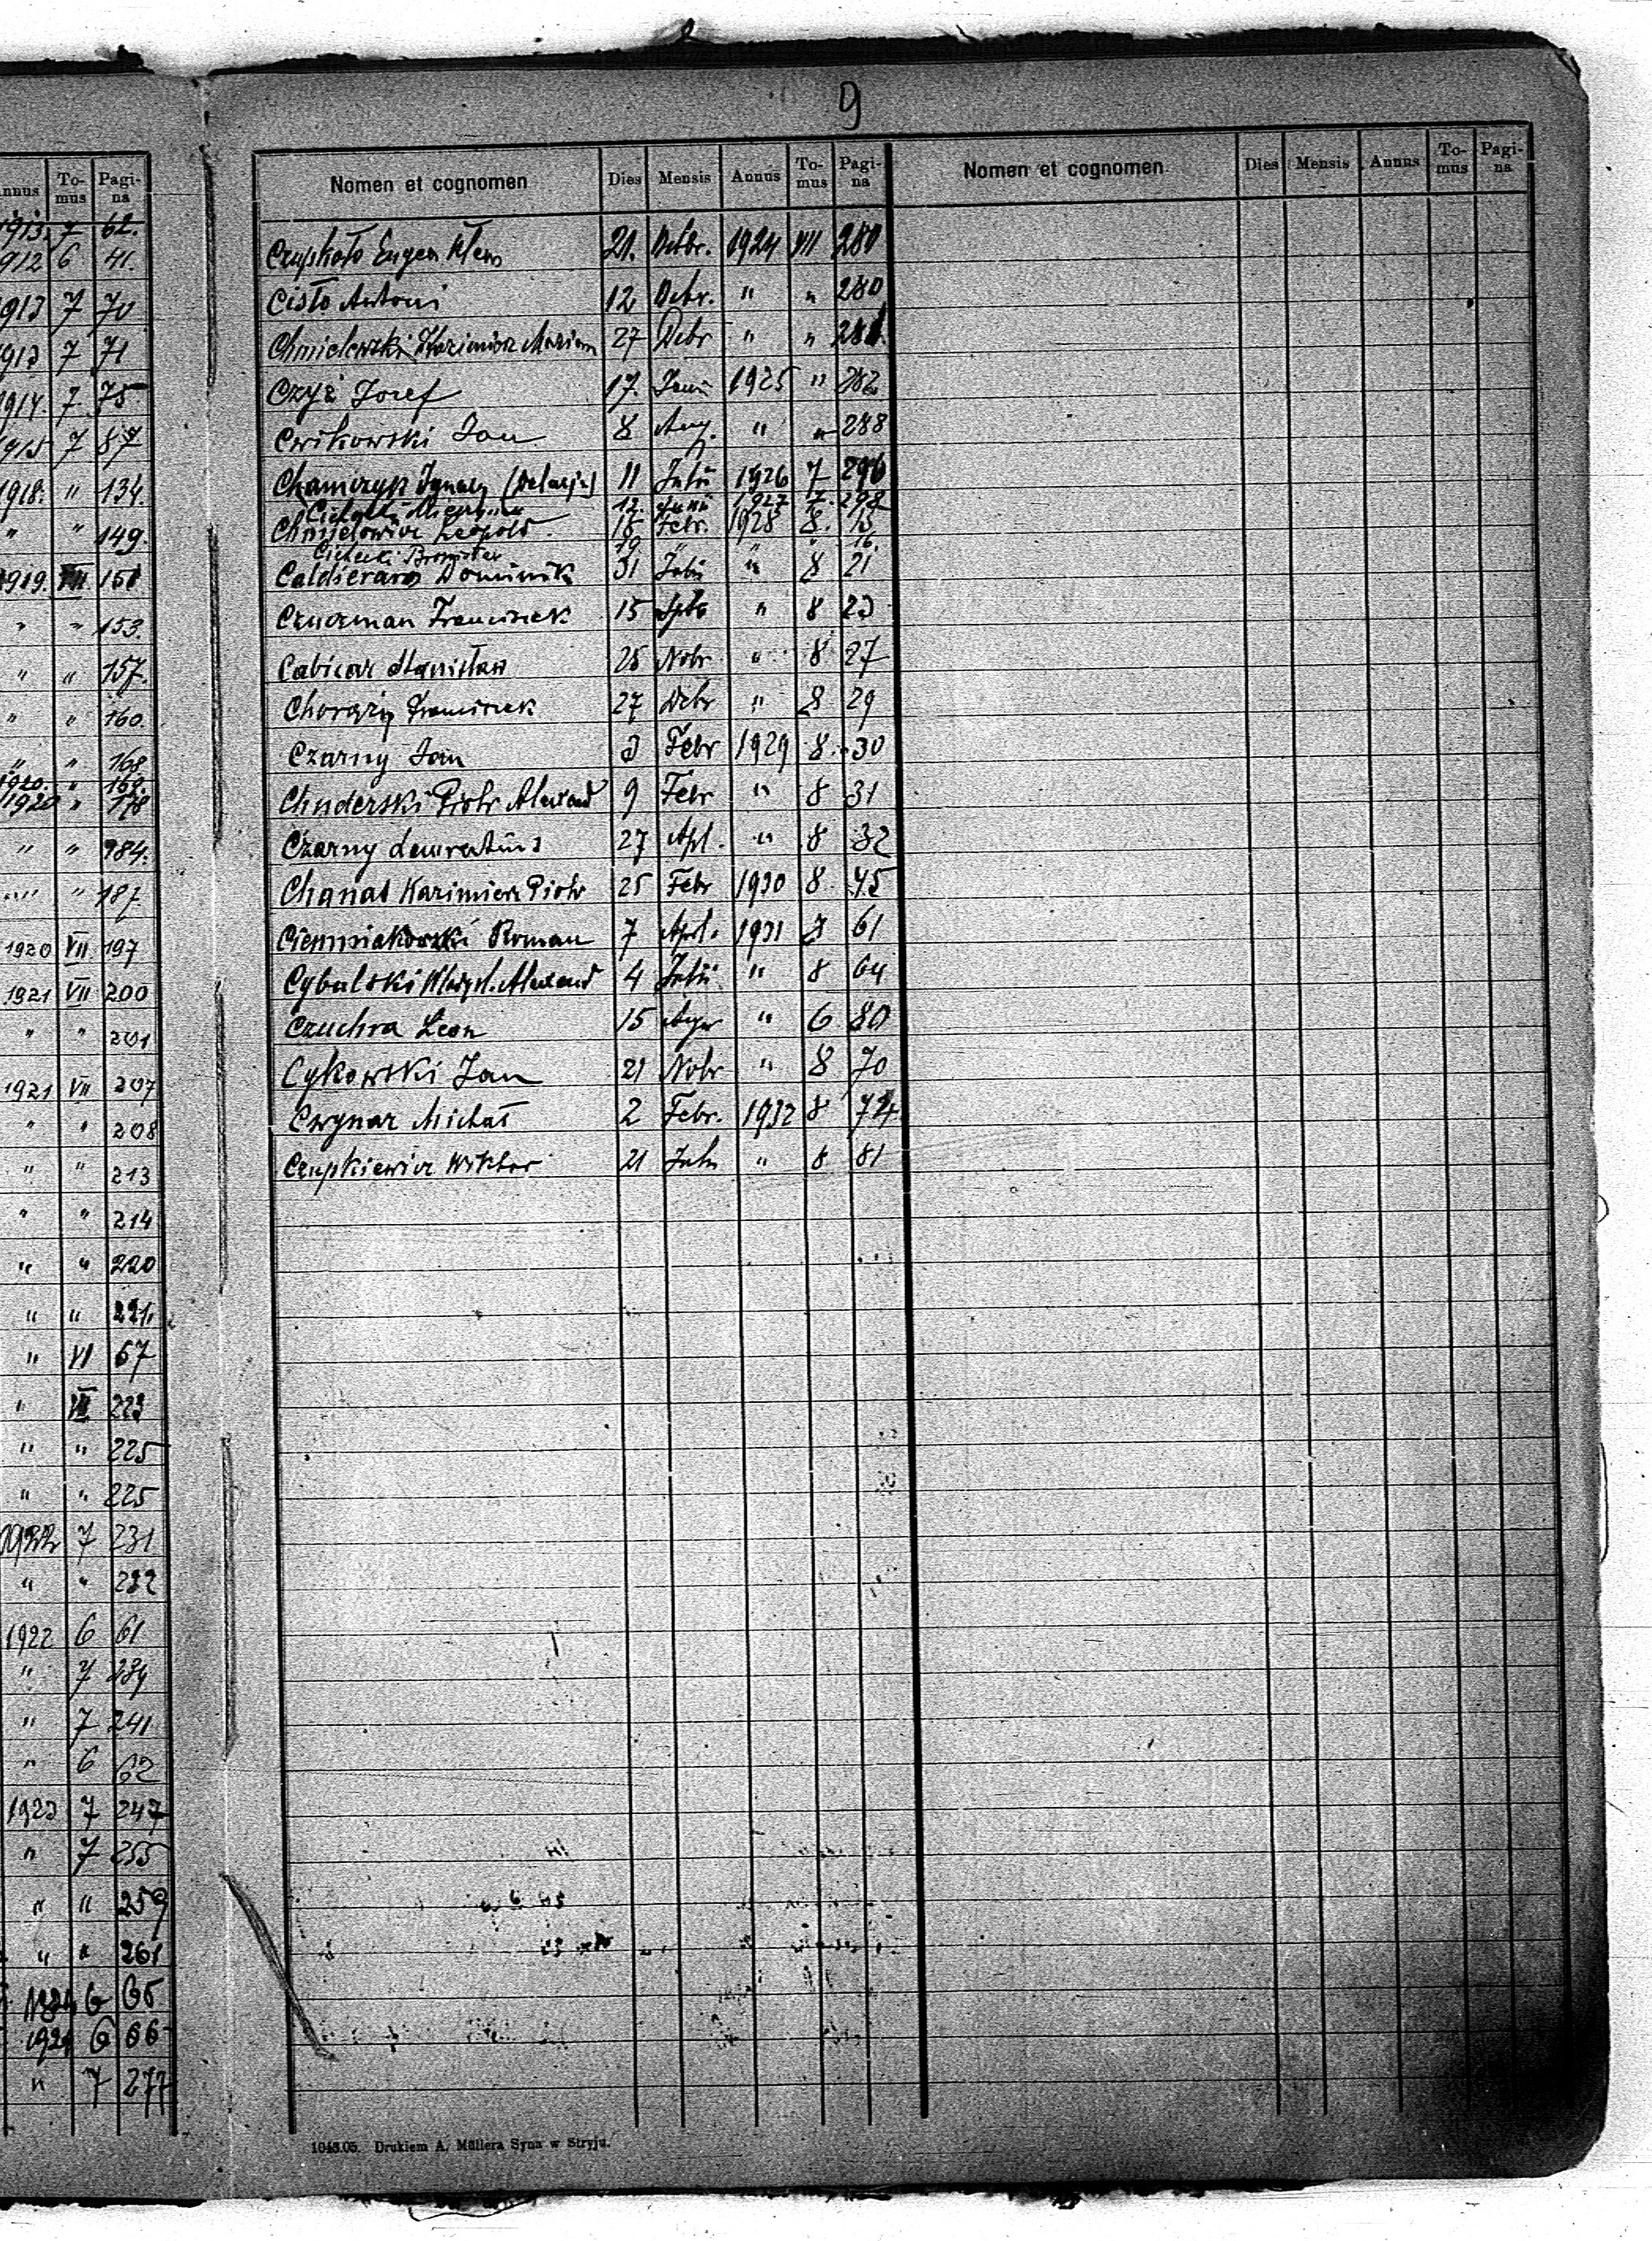 9
nnus To-mus Pagi-na
1913. 7 62.
912 6 41.
913 7 70
913 7 71
1914. 7 75
915 7 87
1918. " 134.
" " 149.
1919. VII 151
" " 153.
" " 157.
" " 160
" " 168
1920. " 169.
1920 " 178
" " 984.
" " 187.
1920 VII 197
1921 VII 200
" " 201
1921 VII 207
" " 208
" " 213
" " 214
" " 220
" " 221.
" VI 57
" VII 223
" " 225
" " 225
1922 7 231
" " 232
1922 6 61
" 7 234
" 7 241
" 6 62
1923 7 247
" 7 255
" " 259
" " 261
1924 6 65
1924 6 66
" 7 277
Nomen et cognomen Dies Mensis Annus To-mus Pagi-na Nomen et cognomen Dies Mensis Annus To-mus Pagi-na
Czupkało Eugen 21. Debr. 1924 VII 280
Cisło Antoni 12 Debr. " " 280
Chmielewski Kazimierz Marian 27 Debr " " 281
Czyż Josef 17. 1925 " 282
Cwikowski Jan 8 Aug. " " 288
Chamczyk Ignacy 11 Julii 1926 7 296
12. Junii 1927 7. 298
Chmielowicz Leopold 15 Febr. 1928 8. 13
Cichecki 19 " " " 16.
Caldieraro Dominik 31 Julii " 8 21
Czuczman Franciszek 15 " 8 23
Cabicar Stanisław 25 Nobr " 8 27
Chorąży Franciszek 27 Debr " 8 29
Czarny Jan 3 Febr 1929 8 30
Chuderski Piotr Alexand 9 Febr " 8 31
Czarny Laurentius 27 Apl. " 8 32
Chanas Kazimierz Piotr 25 Febr 1930 8. 45
Ciemniakowski Roman 7 Apl. 1931 8 61
Cybulski Władysł. Alexand 4 Julii " 8 64
Czuchra Leon 15 " 6 80
Cykowski Jan 21 Nobr " 8 70
Cwynar Michał 2 Febr. 1932 8 74
Czupkiewicz Wiktor 21 " 8 81
1043.05. Drukiem A. Müllera Syna w Stryju.